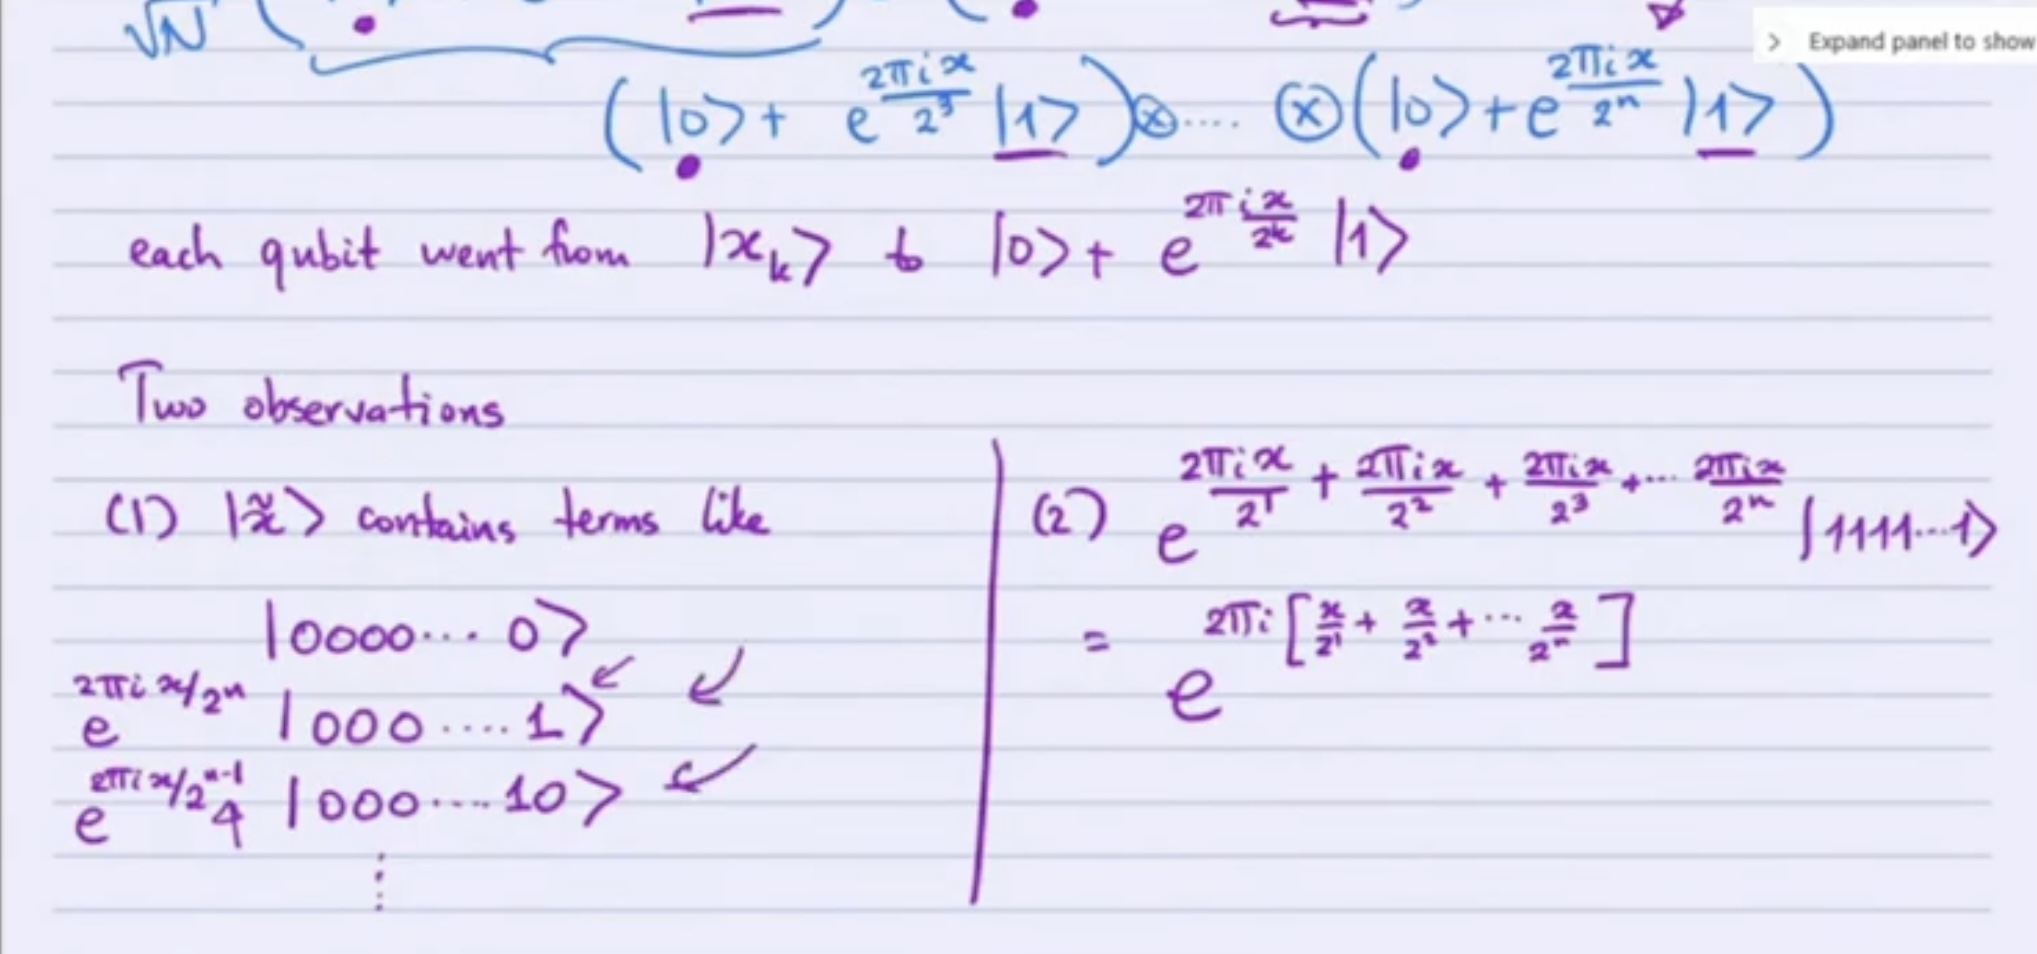 √N ( ) (
> Expand panel to show
(|0> + e^{2πix/2^3} |1>) ⊗ .... ⊗ (|0> + e^{2πix/2^n} |1>)
each qubit went from |x_k> to |0> + e^{2πix/2^k} |1>
Two observations
(1) |x̃> contains terms like
|0000... 0>
e^{2πix/2^n} |000....1>
e^{2πix/2^{n-1}} |000....10>
⋮
(2) e^{2πix/2^1 + 2πix/2^2 + 2πix/2^3 +... 2πix/2^n} |1111...1>
= e^{2πi[x/2^1 + x/2^2 +... x/2^n]}